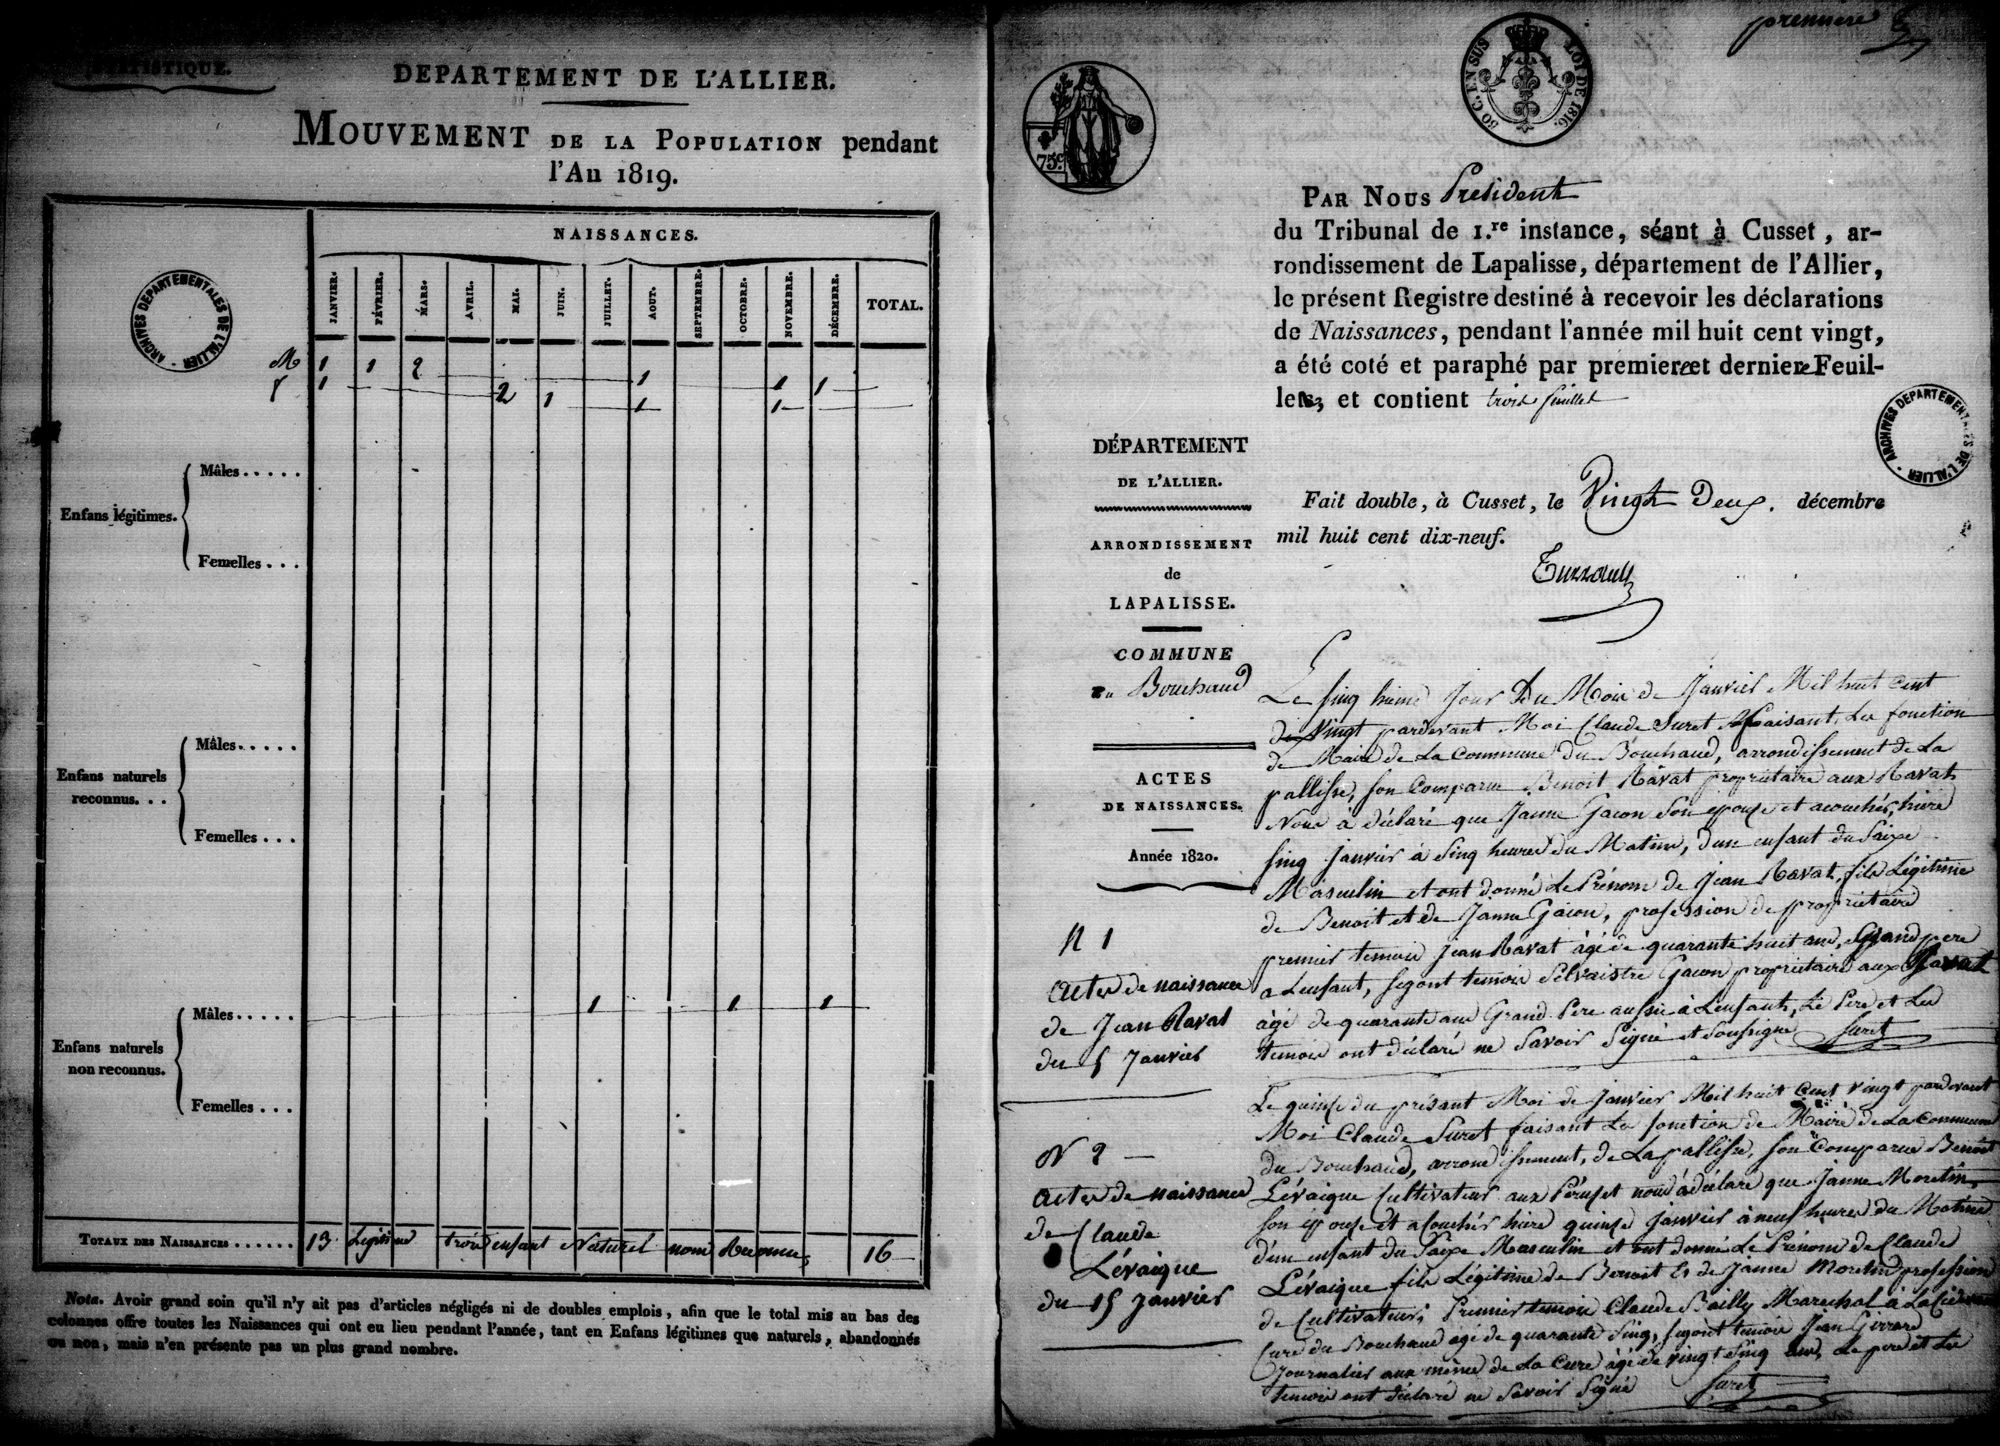 STATISTIQUE.
DEPARTEMENT DE L'ALLIER.
MOUVEMENT DE LA POPULATION pendant
l'An 1819.
NAISSANCES.
JANVIER. FÉVRIER. MARS. AVRIL. MAI. JUIN. JUILLET. AOUT. SEPTEMBRE. OCTOBRE. NOVEMBRE. DÉCEMBRE. TOTAL.
ARCHIVES DEPARTEMENTALES DE L'ALLIER
M 1 1 2 1 1 1
f 1 2 1 1 1
Enfans légitimes.
Mâles.....
Femelles...
Enfans naturels
reconnus...
Mâles.....
Femelles...
Enfans naturels
non reconnus.
Mâles..... 1 1 1
Femelles...
TOTAUX DES NAISSANCES...... 13 Légitime trois enfant Naturel nom Reconnus 16
Nota. Avoir grand soin qu'il n'y ait pas d'articles négligés ni de doubles emplois, afin que le total mis au bas des
colonnes offre toutes les Naissances qui ont eu lieu pendant l'année, tant en Enfans légitimes que naturels, abandonnés
ou non, mais n'en présente pas un plus grand nombre.
première
75c.
50 C. EN SUS LOI DE 1816.
PAR NOUS President
du Tribunal de 1.re instance, séant à Cusset, ar-
rondissement de Lapalisse, département de l'Allier,
le présent Registre destiné à recevoir les déclarations
de Naissances, pendant l'année mil huit cent vingt,
a été coté et paraphé par premiere et derniere Feuil-
lets, et contient trois feuillet
ARCHIVES DEPARTEMENTALES DE L'ALLIER
Fait double, à Cusset, le Vingt Deux. décembre
mil huit cent dix-neuf.
DÉPARTEMENT
DE L'ALLIER.
ARRONDISSEMENT
de
LAPALISSE.
COMMUNE
du Bouchaud
ACTES
DE NAISSANCES.
Année 1820.
N 1
actes de naissance
de Jean Ravat
du 5 Janvier
Le sinq hieme Jour Du Mois de Janvier Mil huit Cent
Vingt pardevant Moi Claude Suret Faisant les fonction
de Maire de La Commune du Bouchaud, arrondissement de La
pallisse, son Comparue Benoit Ravat propriétaire aux Ravat
Nous à déclaré que Janne Gacon Son epouse et acouchés hière
sinq janvier à Sinq heures du Matins, d'un enfant du Saixe
Masculin et ont donné Le Prénom de Jean Ravat, fils Légitime
de Benoit et de Janne Gacon, profession de propriétaire
premier temoin Jean Ravat âgé de quarante huit ans, Grand pere
a Lenfant, segont temoin Selvaistre Gacon propriétaire aux Ravat
âgé de quarante ans Grand Pere aussi à Lenfant, Le Pere et Les
temoin ont déclaré ne Savoir Signé et Soussigne Suret
N 2
actes de naissance
de Claude
Lévaique
du 15 Janvier
Le quinse du présant Moi de Janvier Mil huit Cent Vingt pardevant
Moi Claude Suret faisant Les fonction de Maire de La Commune
du Bouchaud, arrondissement, de Lapallisse, son Comparue Benoit
Lévaique Cultivateur aux nous à déclare que Janne Moretin
son epouse et acouchés hière quinse Janvier à neuf heures du Matins
d'un enfant du Saixe Masculin et ont donné Le Prénom de Claude
Lévaique fils Légitime de Benoit Et de Janne Moretin profession
de Cultivateur, Premier temoin Claude Bailly Marechal à La
Cure du Bouchaud agé de quarante Sinq, segont temoin Jean Girrard
Journalier aux même de La Cure âgé de vingt Sinq ans, Le pere et Les
temoin ont déclaré ne Savoir Signé Suret